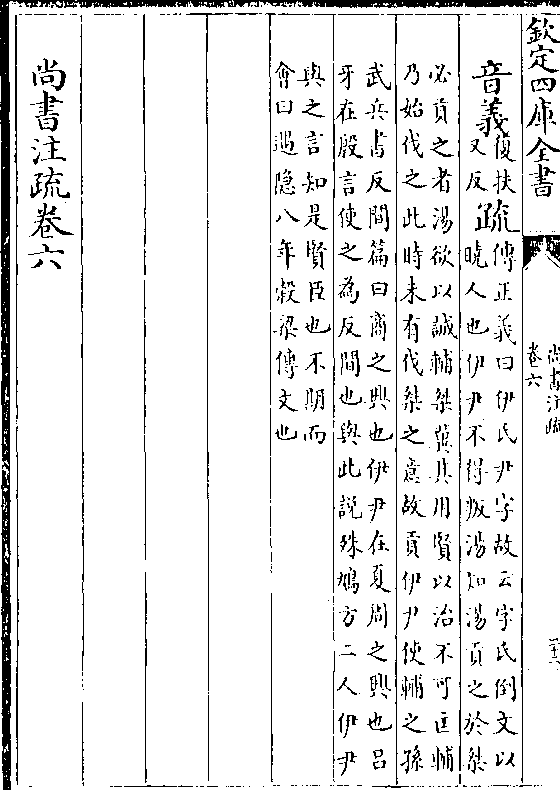 欽定四庫全書
尚書注疏
卷六
音義復扶
又反疏傳正義曰伊氏尹字故云字氏倒文以
曉人也伊尹不得叛湯知湯貢之於桀
必貢之者湯欲以誠輔桀冀其用賢以治不可匡輔
乃始伐之此時未有伐桀之意故貢伊尹使輔之孫
武兵書反間篇曰商之興也伊尹在夏周之興也呂
牙在殷言使之為反間也與此說殊鳩方二人伊尹
與之言知是賢臣也不期而
會曰遇隱八年穀梁傳文也
尚書注疏卷六